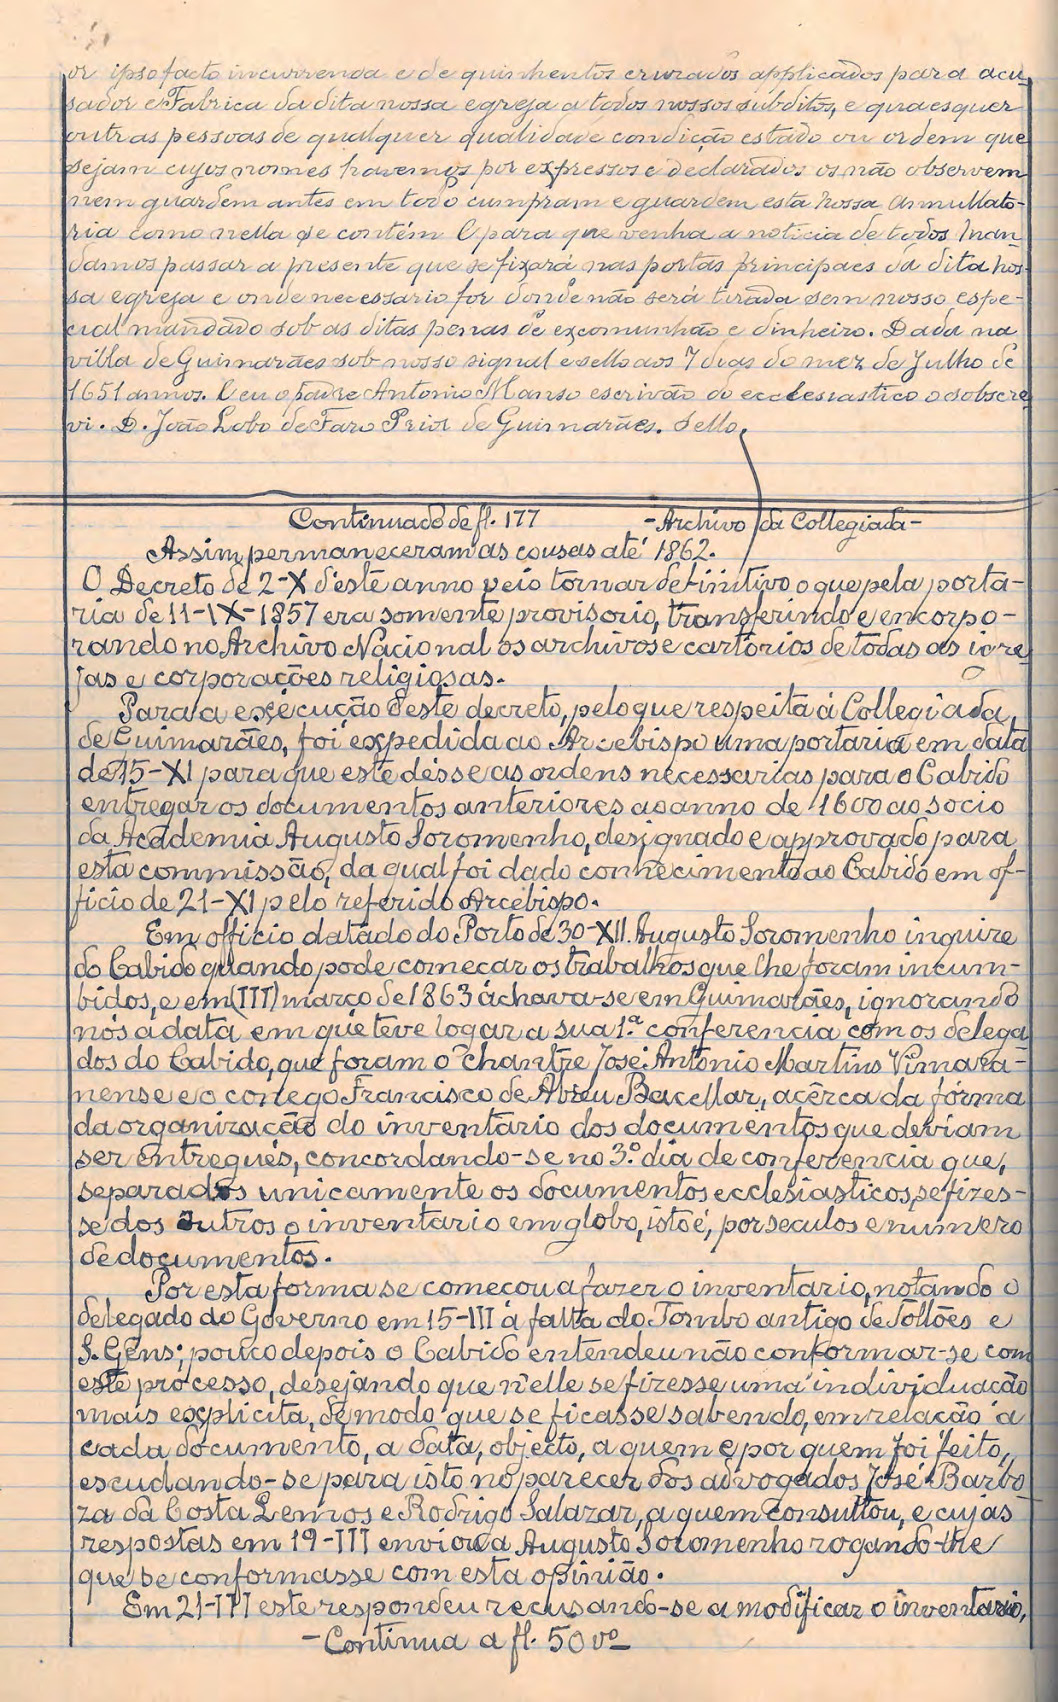 or ipso facto incurrenda e de quinhentos cruzados applicados para acu-
sador e Fabrica da dita nossa egreja a todos nossos subditos, e quaesquer
outras pessoas de qualquer qualidade condição estado ou ordem que
sejam cujos nomes havemos por expressos e declarados os não observem
nem guardem antes em todo cumpram e guardem esta nossa Annullato-
ria como nella se contém E para que venha a noticia de todos Man-
damos passar a presente que se fixará nas portas principaes da dita nos-
sa egreja e onde necessario for donde não será tirada sem nosso espe-
cial mandado sob as ditas penas de excomunhão e dinheiro. Dada na
villa de Guimarães sob nosso signal e sello aos 7 dias do mez de Julho de
1651 annos. E eu o padre Antonio Manso escrivão do ecclesiastico o sobscre-
vi. D. João Lobo de Faro Prior de Guimarães. Sello.
Continuado de fl. 177 - Archivo da Collegiada -
Assim permaneceram as cousas até 1862.
O Decreto de 2-X d'este anno veio tornar definitivo o que pela porta-
ria de 11-IX-1857 era somente provisorio, transferindo e encorpo-
rando no Archivo Nacional os archivos e cartorios de todas as igre-
jas e corporações religiosas.
Para a execução d'este decreto, pelo que respeita á Collegiada
de Guimarães, foi expedida ao Arcebispo uma portaria em data
de 15-XI para que este désse as ordens necessarias para o Cabido
entregar os documentos anteriores ao anno de 1600 ao socio
da Academia Augusto Soromenho, designado e approvado para
esta commissão, da qual foi dado conhecimento ao Cabido em of-
ficio de 21-XI pelo referido Arcebispo.
Em officio datado do Porto de 30-XII Augusto Soromenho inquire
do Cabido quando pode começar os trabalhos que lhe foram incum-
bidos, e em (III) março de 1863 áchava-se em Guimarães, ignorando
nós a data em que teve logar a sua 1.ª conferencia com os delega
dos do Cabido, que foram o chantre José Antonio Martins Vimara-
nense e o conego Francisco de Abreu Bacellar, acêrca da fórma
da organização do inventario dos documentos que deviam
ser entregues, concordando-se no 3.º dia de conferencia que,
separados unicamente os documentos ecclesiasticos, se fizes-
se dos outros o inventario em globo, isto é, por seculos e numero
de documentos.
Por esta forma se começou a fazer o inventario, notando o
delegado do Governo em 15-III á falta do Tombo antigo de Tollões e
S. Gens; pouco depois o Cabido entendeu não conformar-se com
este processo, desejando que n'elle se fizesse uma individuação
mais explicita, de modo que se ficasse sabendo, em relação a
cada documento, a data, objecto, a quem e por quem foi feito,
escudando-se para isto no parecer dos advogados José Barbo
za da Costa Lemos e Rodrigo Salazar, a quem consultou, e cujas
respostas em 19-III enviou a Augusto Soromenho rogando-lhe
que se conformasse com esta opinião.
Em 21-III este respondeu recusando-se a modificar o inventario,
- Continua a fl. 50 vº